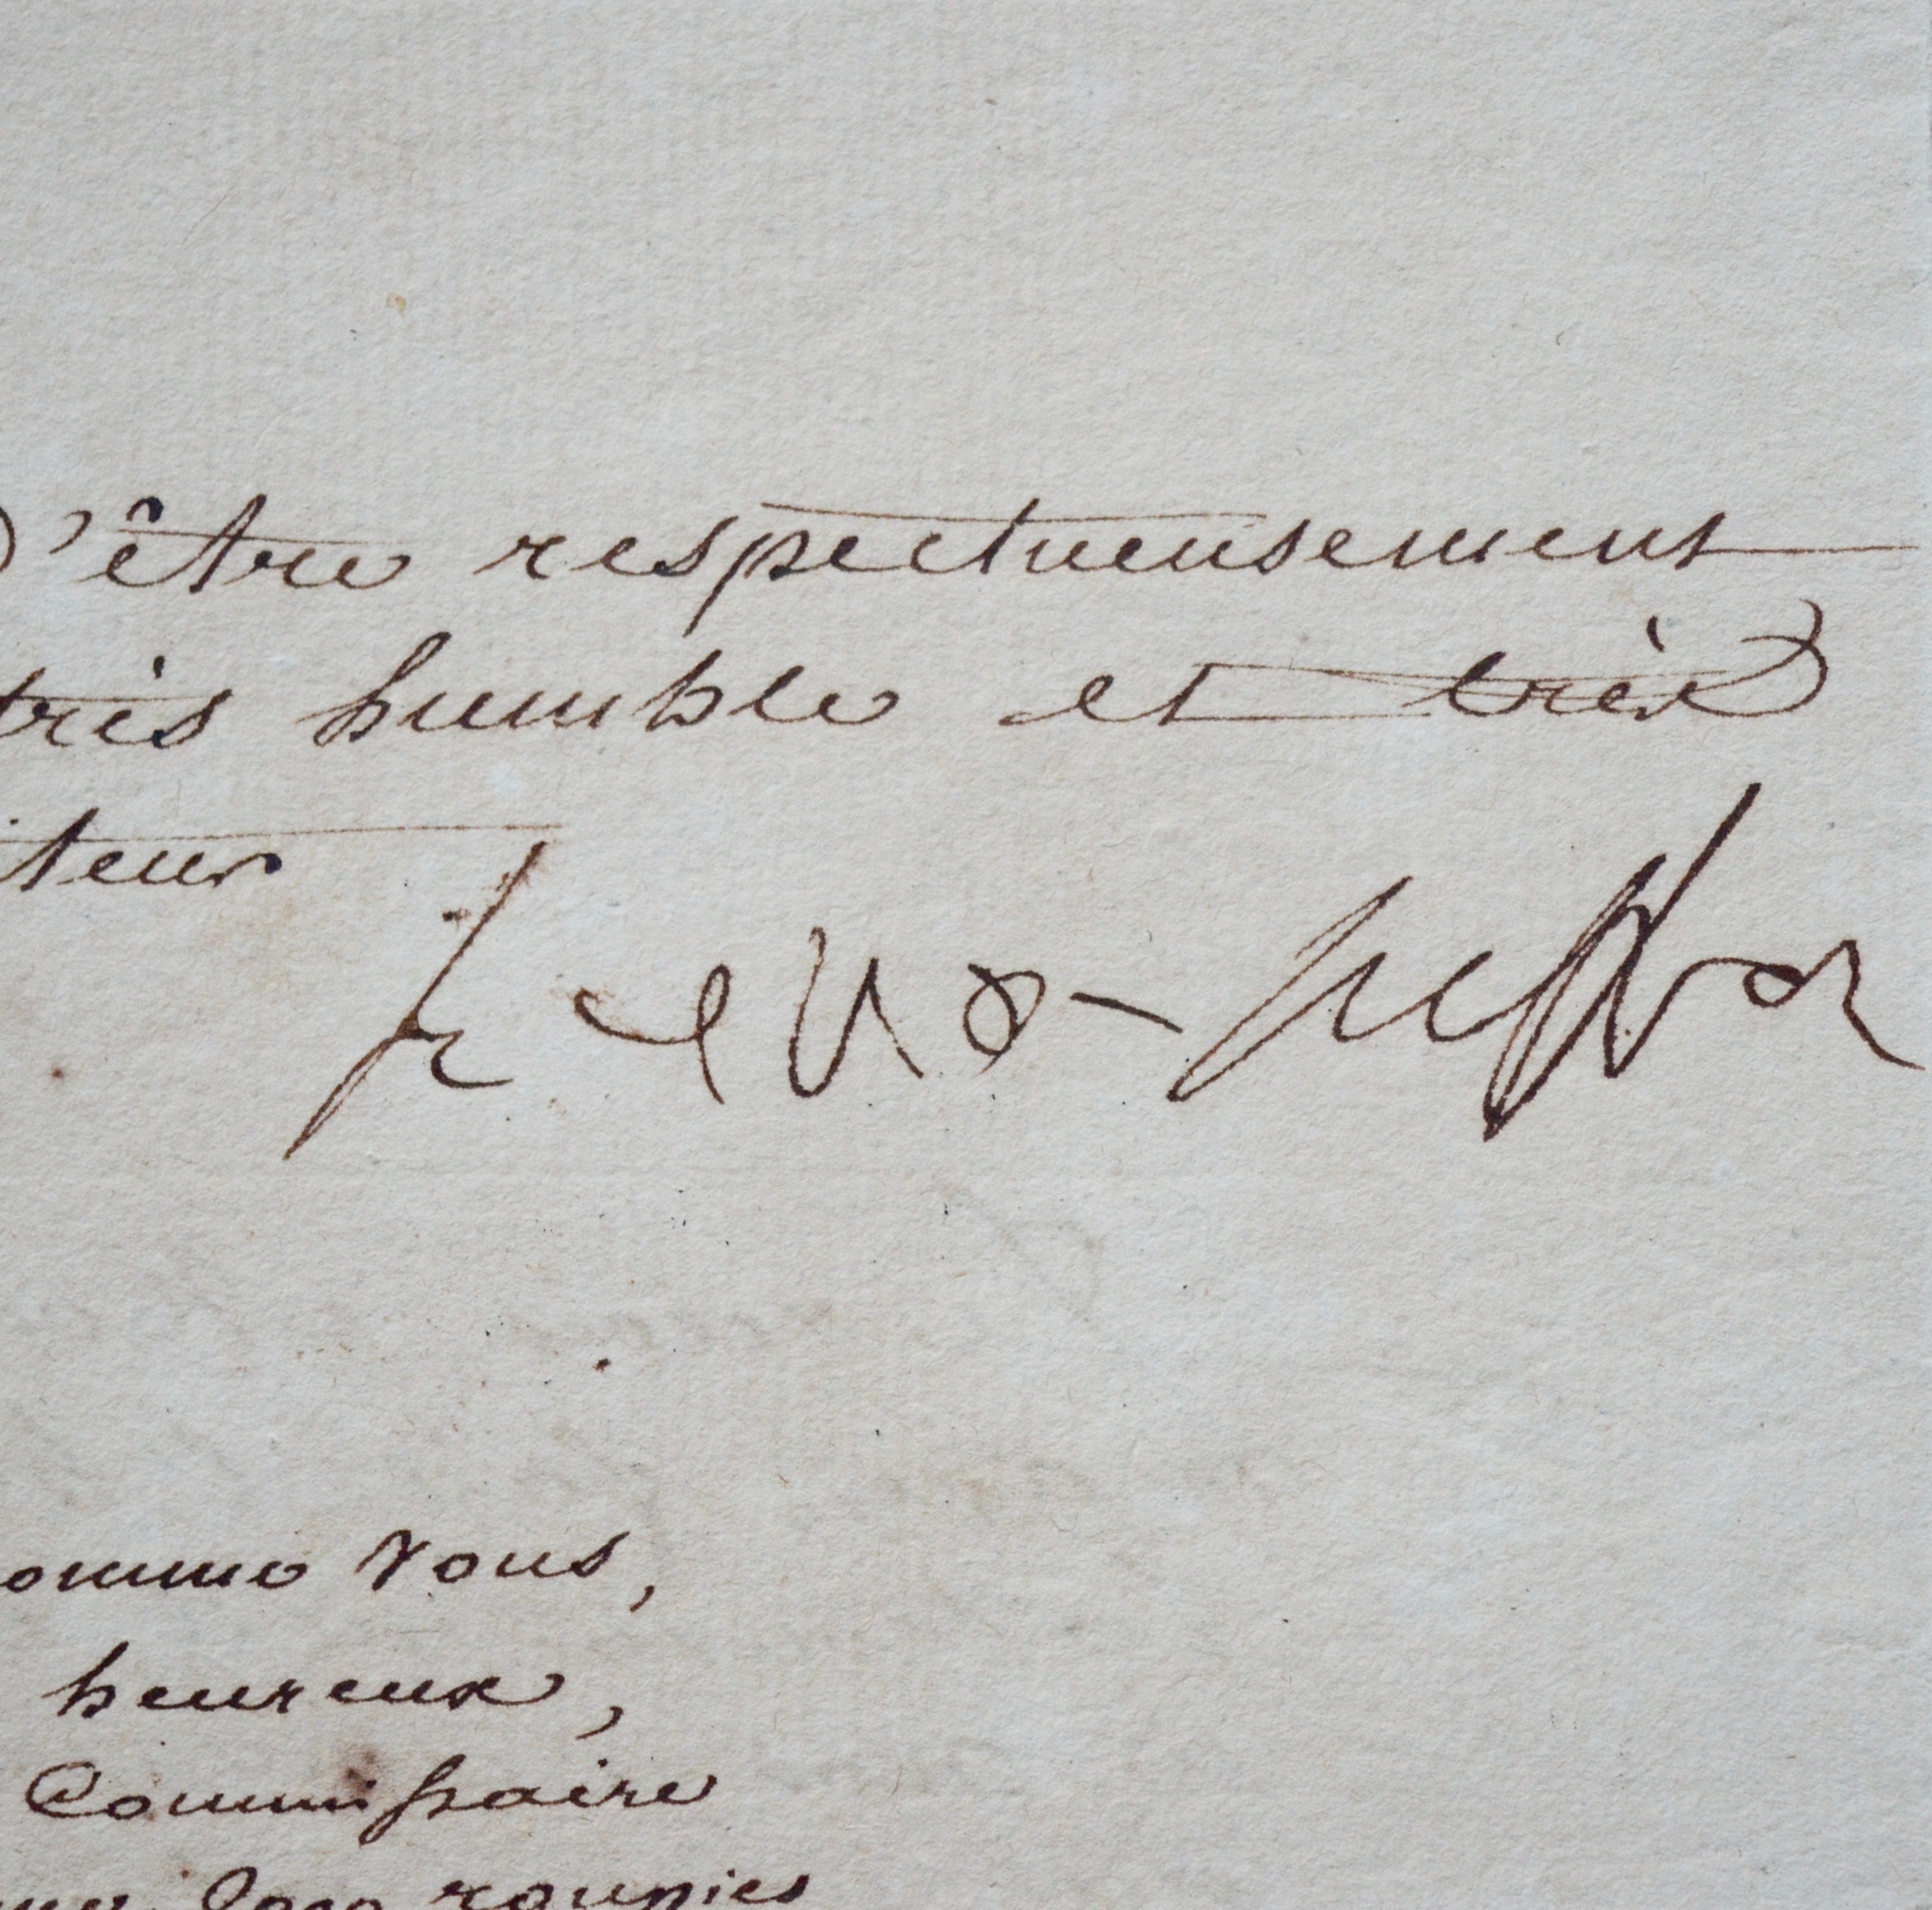 D'être respectueusement
très humble et très
teur
omme vous,
heureux,
Commissaire
roupies